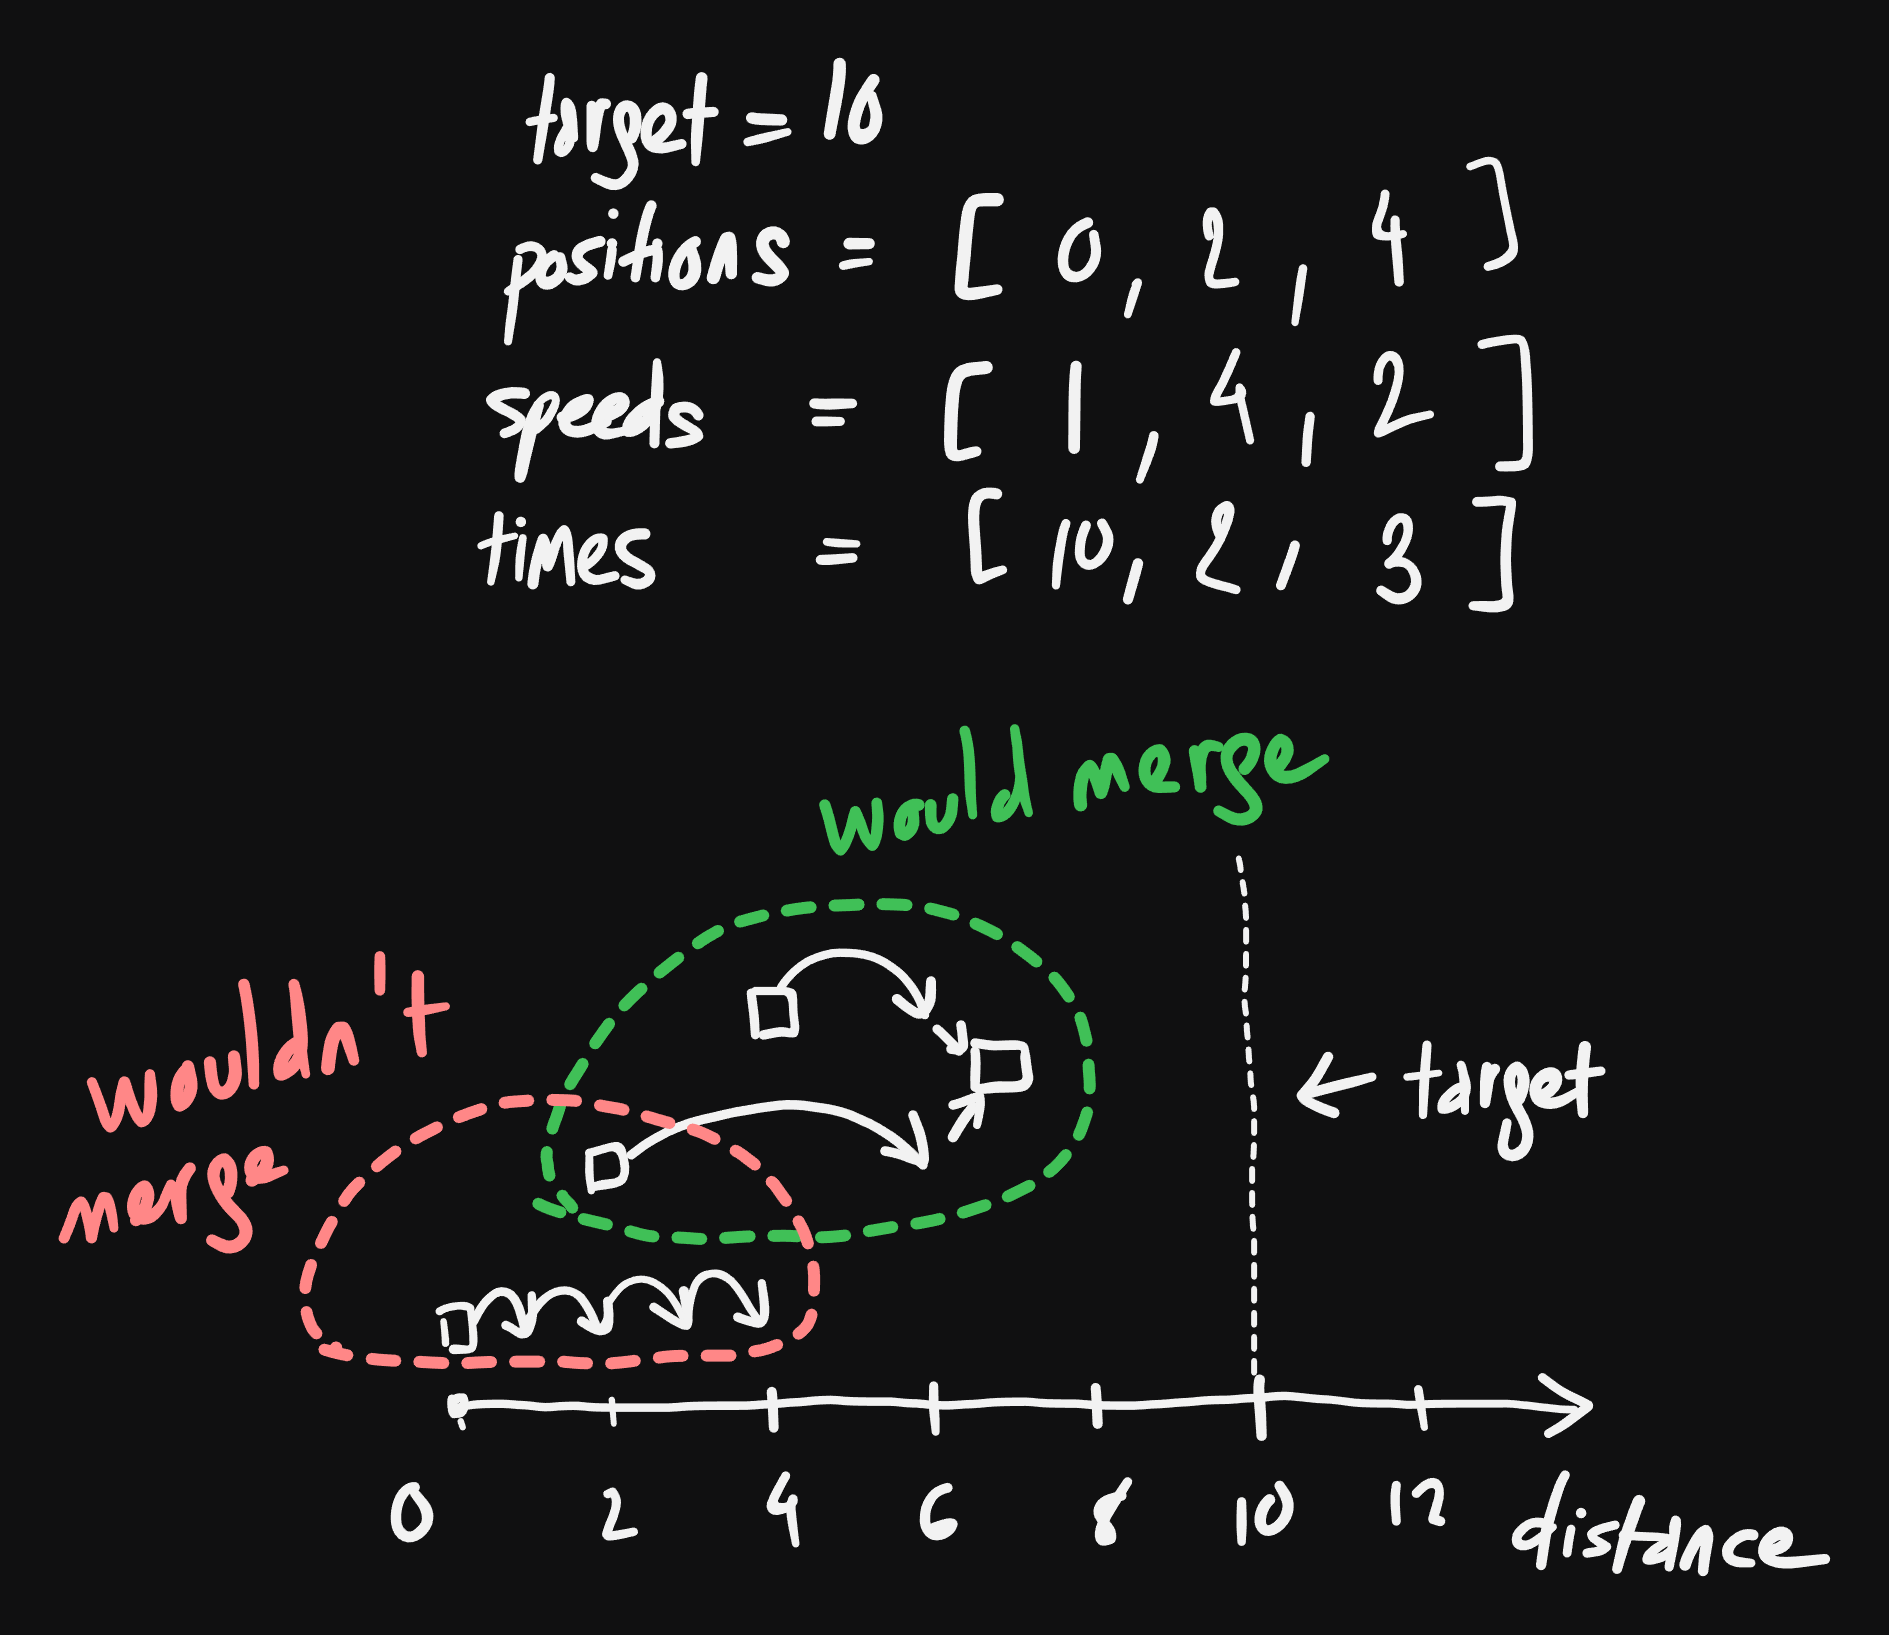 target = 10
positions = [ 0, 2, 4 ]
speeds = [ 1, 4, 2 ]
times = [ 10, 2, 3 ]
would merge
wouldn't
merge
← target
0 2 4 6 8 10 12 distance